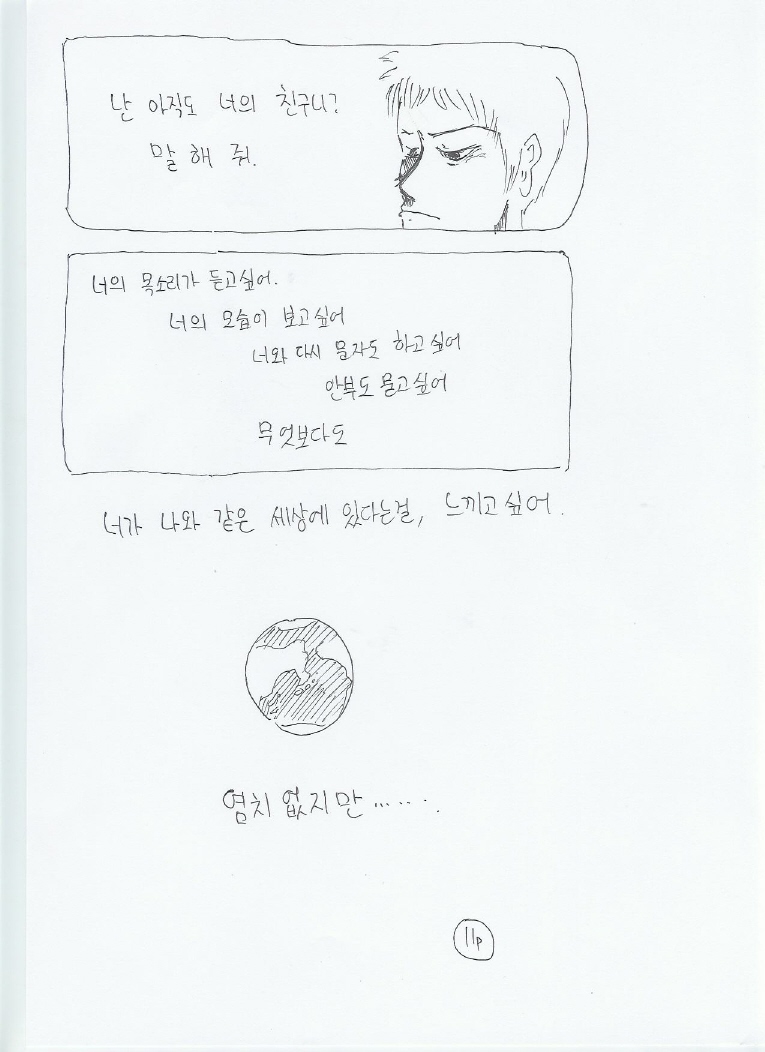 난 아직도 너의 친구니?
말해 줘.
너의 목소리가 듣고싶어.
너의 모습이 보고싶어
너와 다시 문자도 하고싶어
안부도 묻고싶어
무엇보다도
너가 나와 같은 세상에 있다는걸, 느끼고싶어.
염치 없지만.......
11p